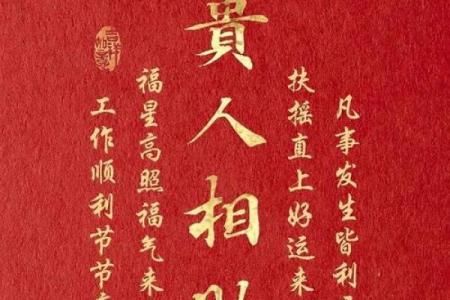 凡事发生皆利
扶摇直上好运来
貴人相
福星高照福气来
工作顺利节节